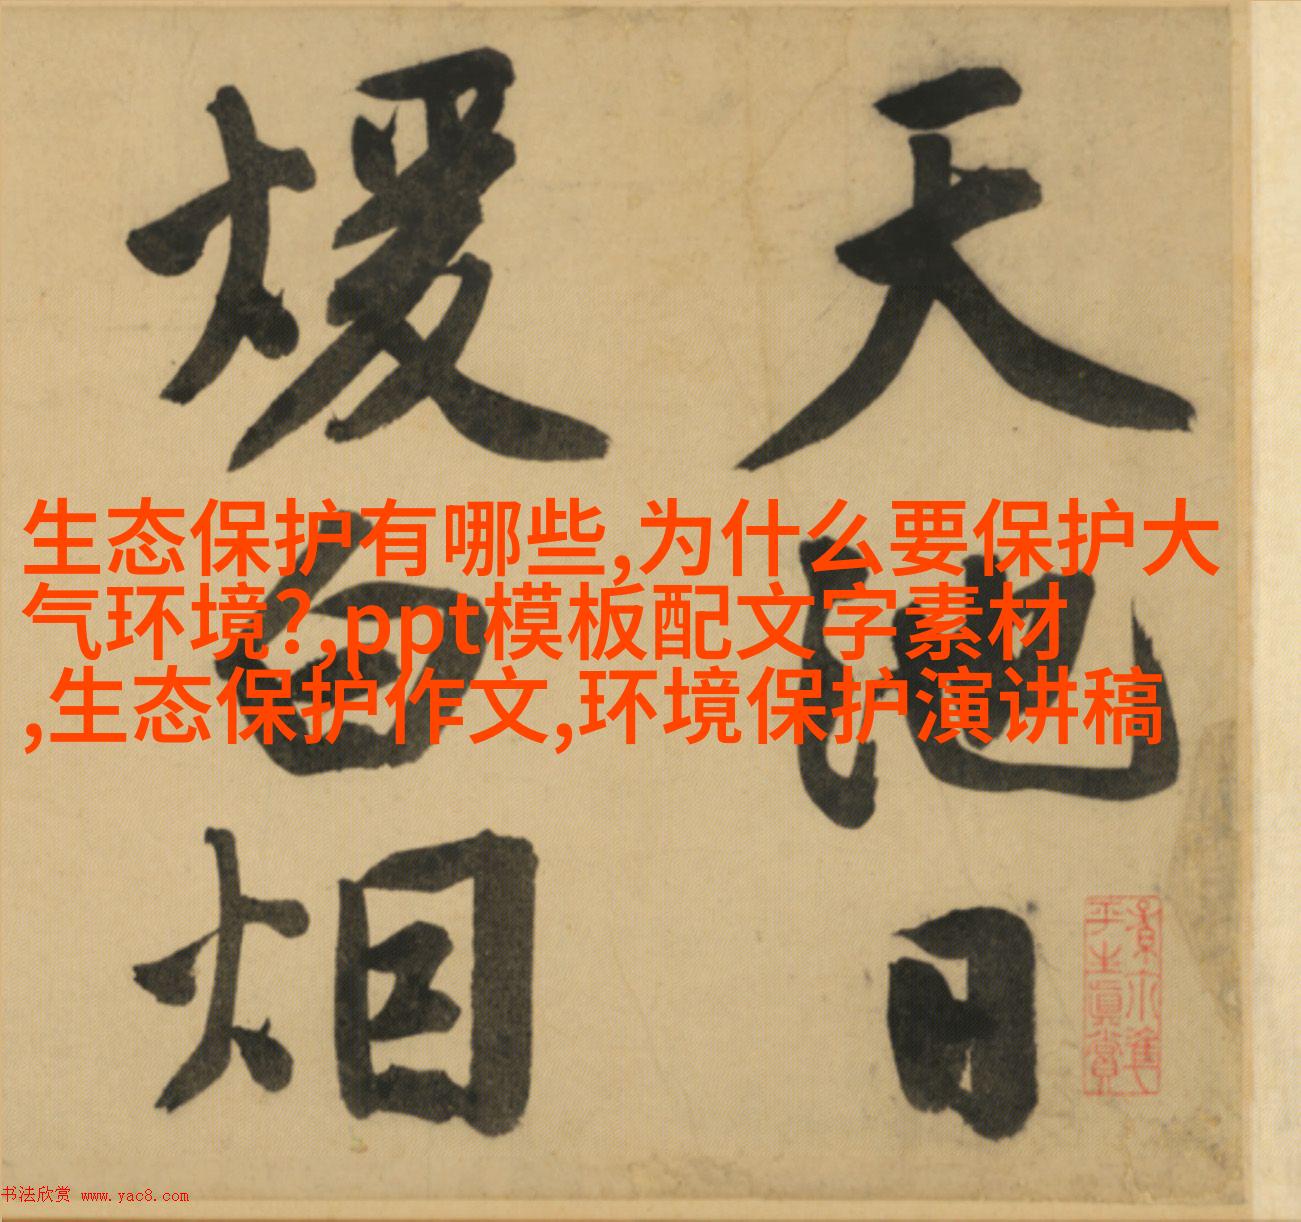 天池日
煖白烟
生态保护有哪些,为什么要保护大
气环境?,ppt模板配文字素材
,生态保护作文,环境保护演讲稿
平生真賞
书法欣赏 www.yac8.com